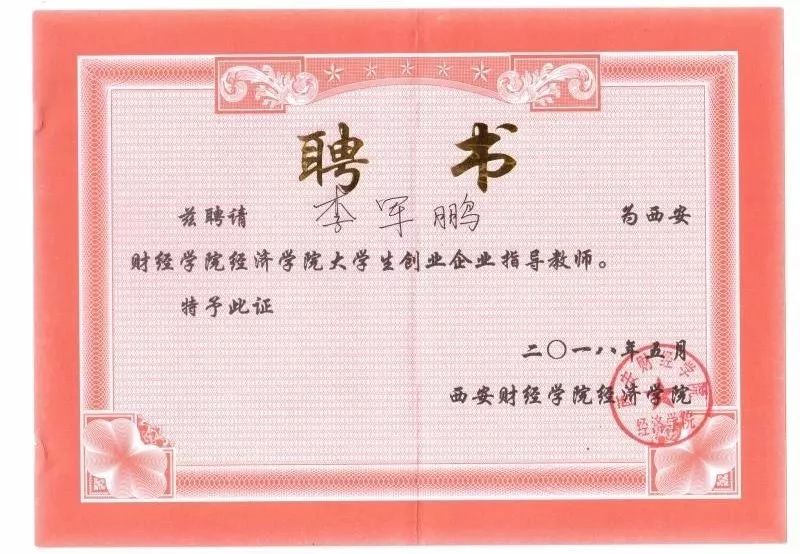 聘书
兹聘请 李军鹏 为西安
财经学院经济学院大学生创业企业指导教师。
特予此证
二〇一八年五月
西安财经学院经济学院
西安财经学院
经济学院